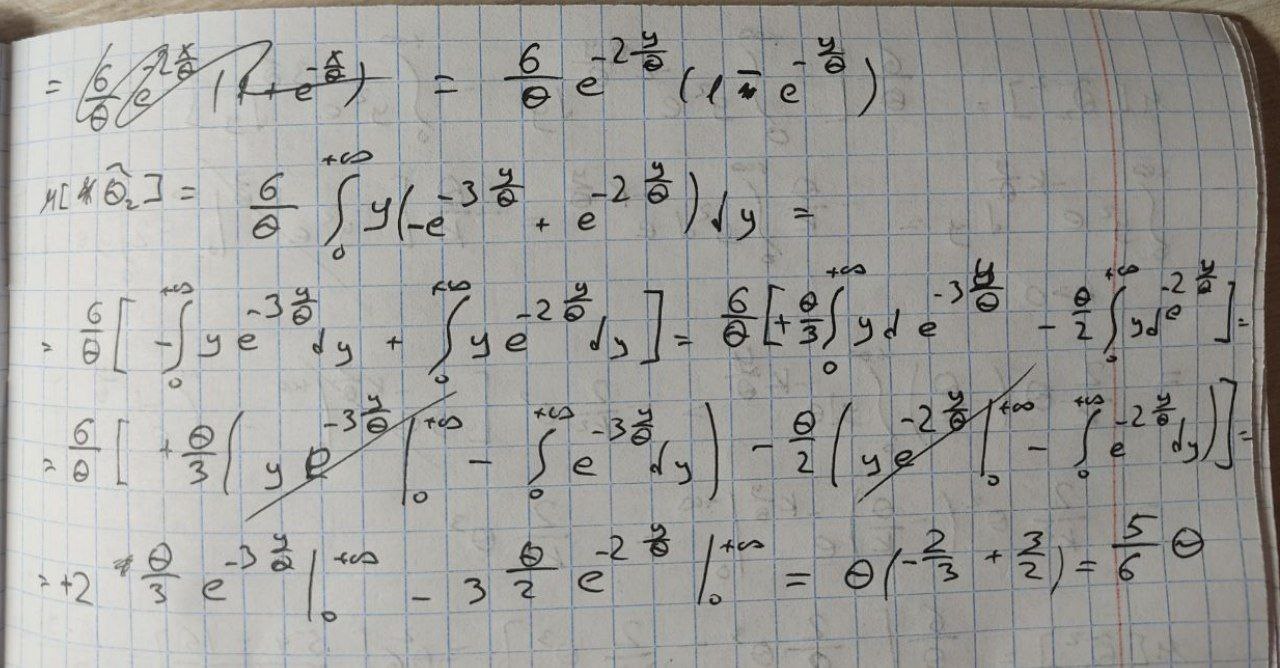 = 6/θ e^{-2 y/θ} (1 - e^{-y/θ})
M[θ̃₂] = 6/θ ∫₀^{+∞} y(-e^{-3 y/θ} + e^{-2 y/θ}) dy =
= 6/θ [ -∫₀^{+∞} y e^{-3 y/θ} dy + ∫₀^{+∞} y e^{-2 y/θ} dy ] = 6/θ [ +θ/3 ∫₀^{+∞} y d e^{-3 y/θ} - θ/2 ∫₀^{+∞} y d e^{-2 y/θ} ] =
= 6/θ [ +θ/3 ( y e^{-3 y/θ} |₀^{+∞} - ∫₀^{+∞} e^{-3 y/θ} dy ) - θ/2 ( y e^{-2 y/θ} |₀^{+∞} - ∫₀^{+∞} e^{-2 y/θ} dy ) ] =
= +2 θ/3 e^{-3 y/θ} |₀^{+∞} - 3 θ/2 e^{-2 y/θ} |₀^{+∞} = θ(-2/3 + 3/2) = 5/6 θ